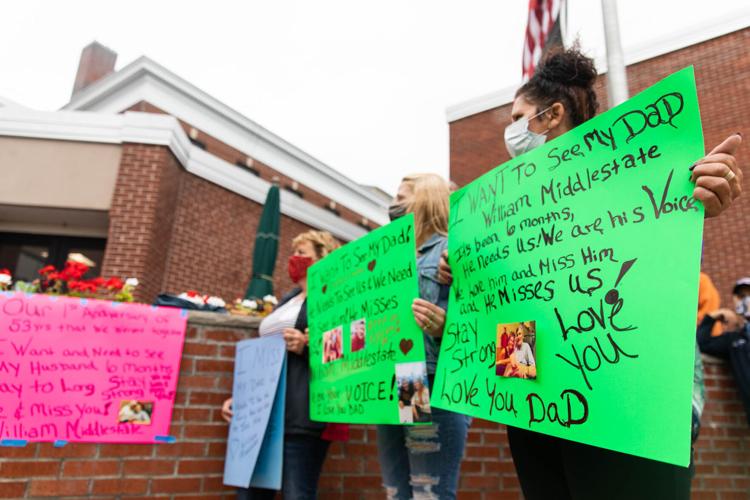 Our 1st Anniversary of
53 yrs that we weren't together
I Want and Need to See
My Husband 6 months
way to Long Stay
Strong
& Miss You!
William Middlestate
I Miss
I Want To See My Dad!
He Needs To See Us & We Need
To See Him! He Misses
Middlestate
your VOICE!
I Love you DAD
I WANT To See My DaD
William Middlestate
It's been 6 months,
He Needs Us! We are his Voice
We Love him and Miss Him
and He Misses us!
Stay
Strong
Love
You
Love You DaD